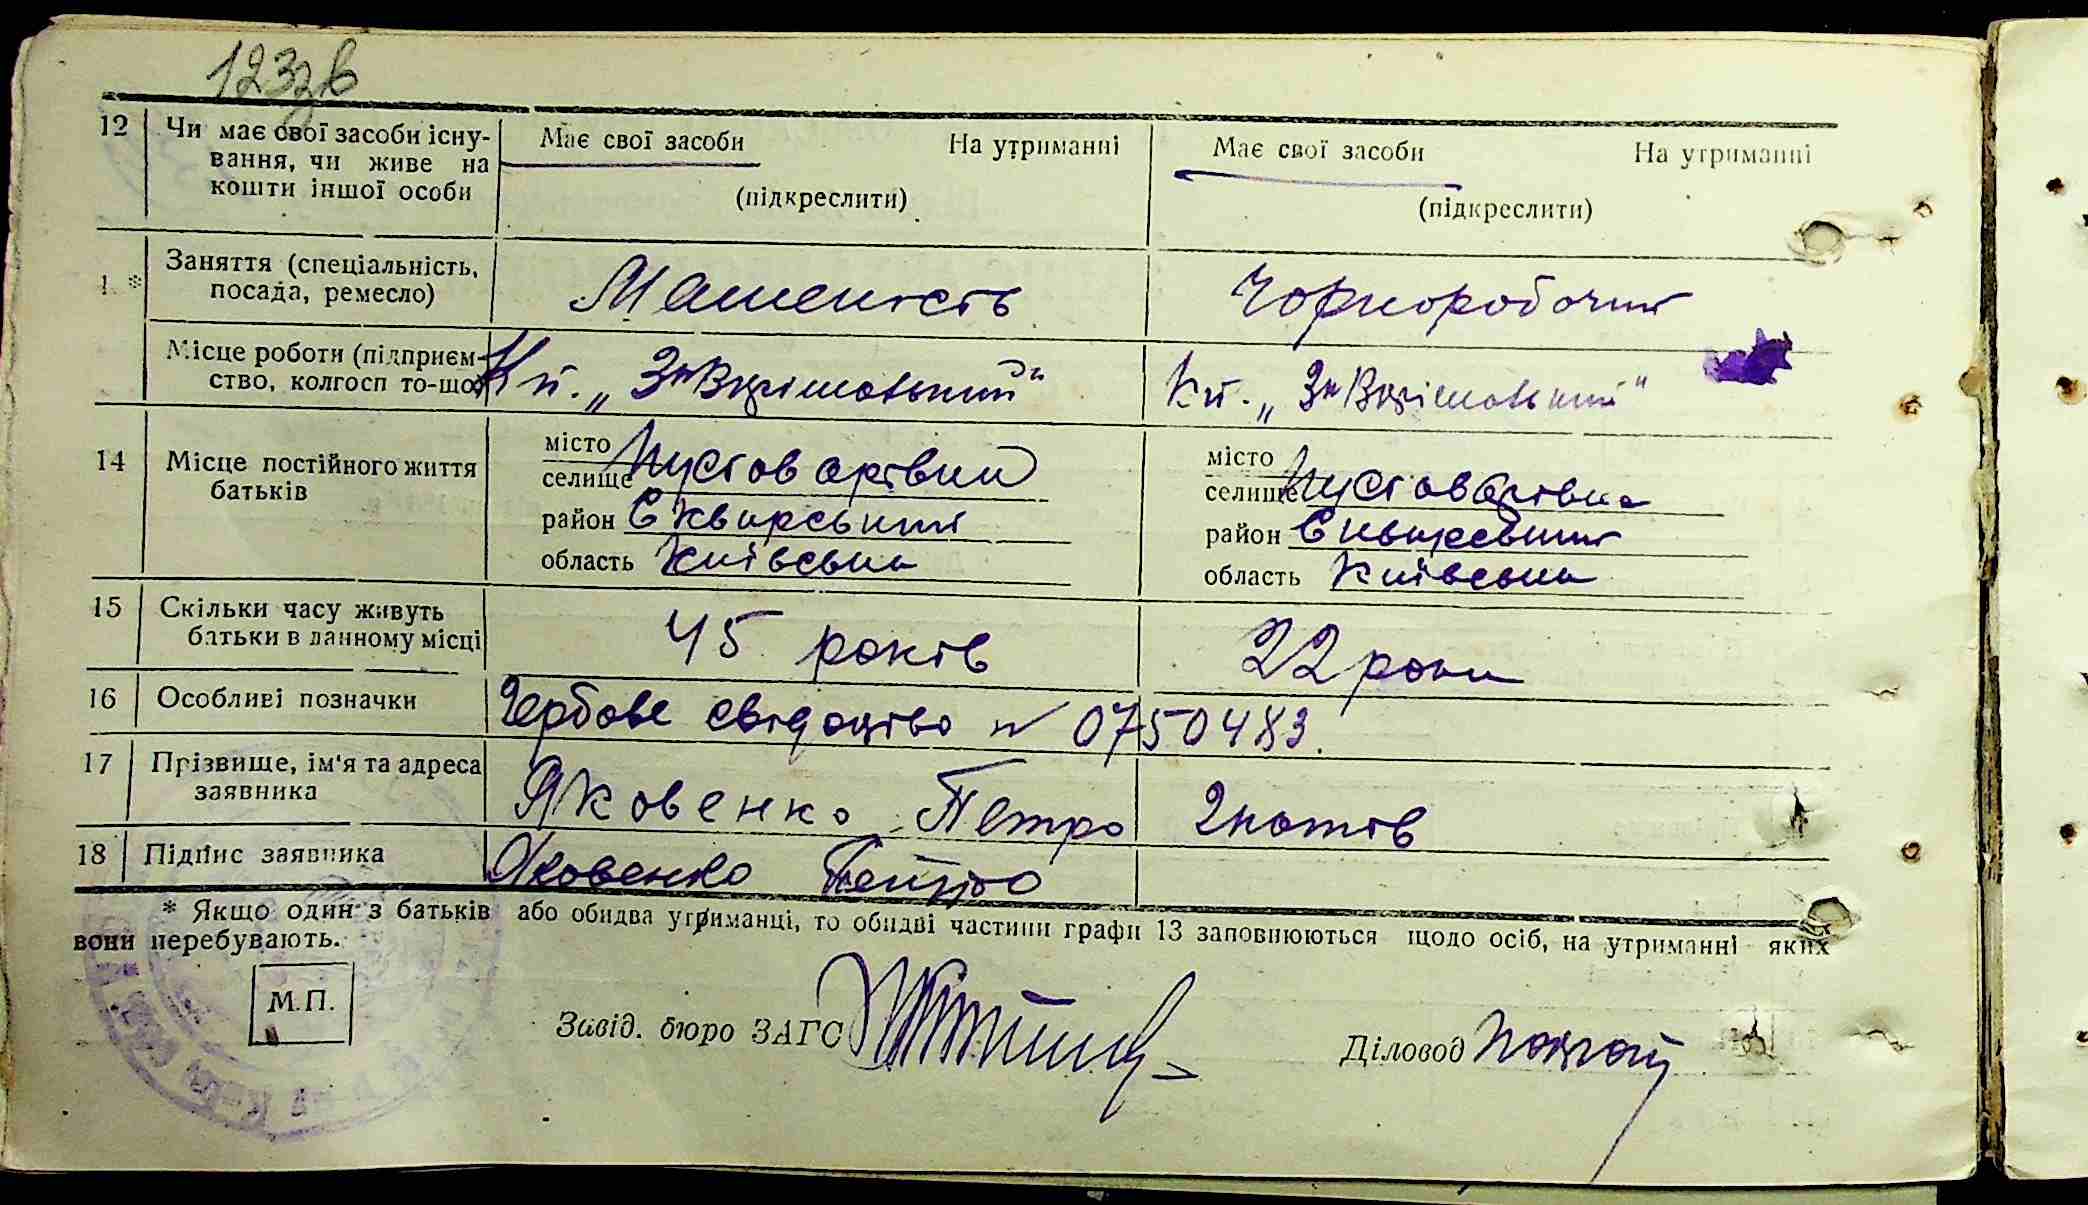 123зв
12 Чи має свої засоби існу- Має свої засоби На утриманні Має свої засоби На утриманні
вання, чи живе на
кошти іншої особи (підкреслити) (підкреслити)
1 * Заняття (спеціальність, Машеність Чорноробочий
посада, ремесло)
Місце роботи (підприєм- К-п. „3й Вирішальний" К-п. „3й Вирішальний"
ство, колгосп то-що)
місто Пустоварівка місто Пустоварівка
14 Місце постійного життя селище селище
батьків район Сквирський район Сквирський
область Київська область Київська
15 Скільки часу живуть 45 років 22 роки
батьки в данному місці
16 Особливі позначки Гербове свідоцтво № 0750483.
17 Прізвище, ім'я та адреса Яковенко Петро Гнатів
заявника
18 Підпис заявника Яковенко Петро
* Якщо один з батьків або обидва утриманці, то обидві частини графи 13 заповнюються щодо осіб, на утриманні яких
вони перебувають.
М.П.
Завід. бюро ЗАГС Діловод